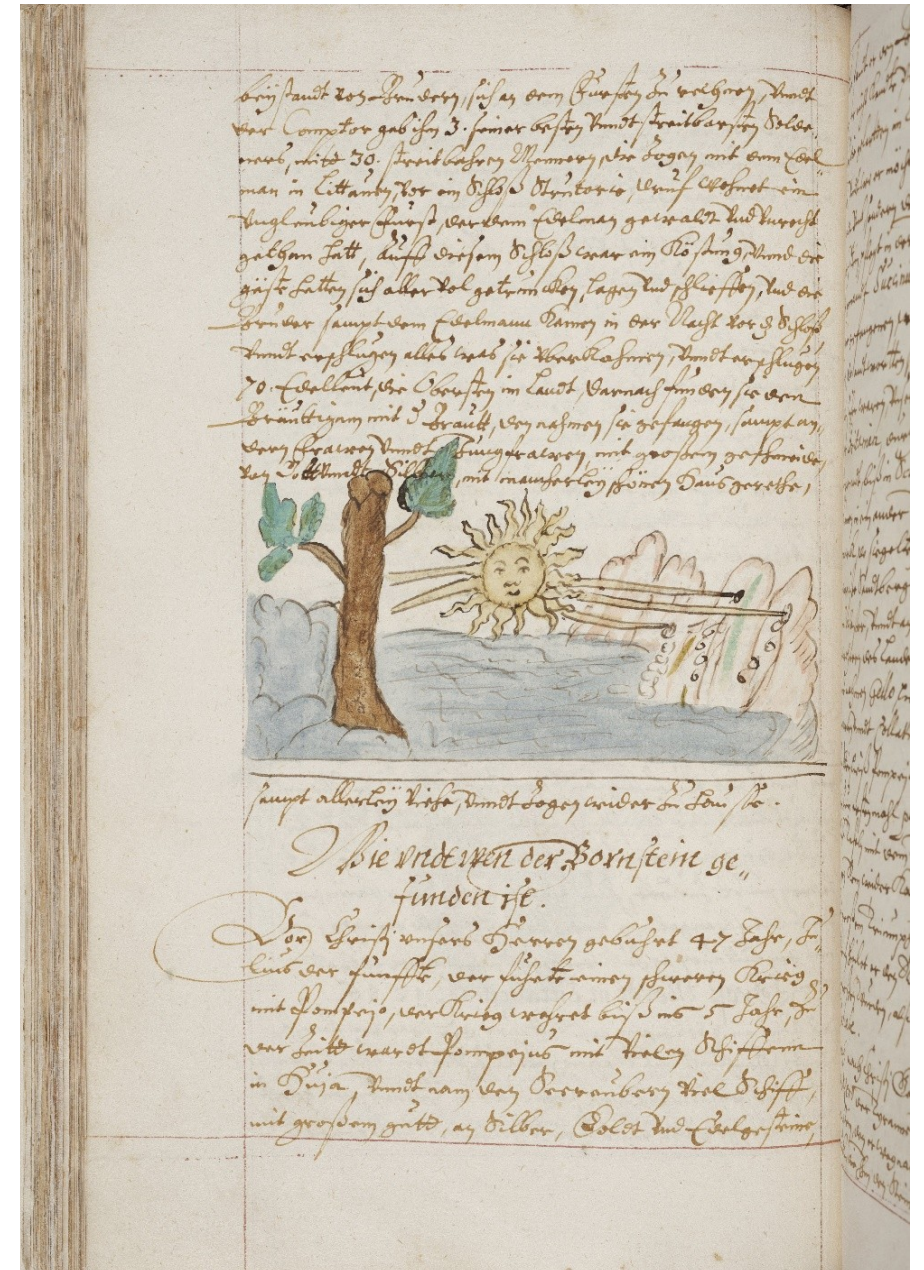 beÿstandt von Brudern, sich an dem Fürsten zu rechnen, Vnndt
der Comptor gab ihm 3. seiner besten Vnndt streitbarsten Solde
ners, mitt 30. streitbahren Mennern, die zogen mit dem Edel
man in Littauen, vor ein Schloß Strutorie, druf wohnet ein
Vngleubiger Fürst, der dem Edelman gewaldt Vnd Vnrecht
gethan hatt, Auff diesem Schloß war ein Köstung, Vnnd die
gäste hatten sich aller vol getruncken, lagen Vnd schlieffen, Vnd die
Brüder sampt dem Edelmann kamen in der Nacht vor dz Schloß
Vnndt erschlugen alles was sie Vberkahmen, Vnndt erschlugen
70. Edelleut, die Obersten im Landt, darnach funden sie den
Bräuttigam mit d Brautt, den nahmen sie gefangen, sampt an„
dern Frawen Vnndt Jungfrawen, mit großem geschmeide,
von Goltt Vnndt Silber, mit mancherleÿ schönen Hausgerethe,
sampt allerleÿ Viehe, Vnndt zogen wider zu Hausse.
Wie vndt wen der Bornstein ge„
funden ist.
Vor Christj vnsers Herren gebuhrt 47 Jahr, Ju„
lius der funffte, der fuhete einen schweren Krieg
mit Pompejo, der Krieg wehret biß ins 5 Jahr, Zu
der Zeitt wardt Pompejus mit Vielen Schiffenn
in Vnndt nam den Seereubern Viel Schiff,
mit großem gutt, an Silber, Goldt Vnd Edelgesteine,